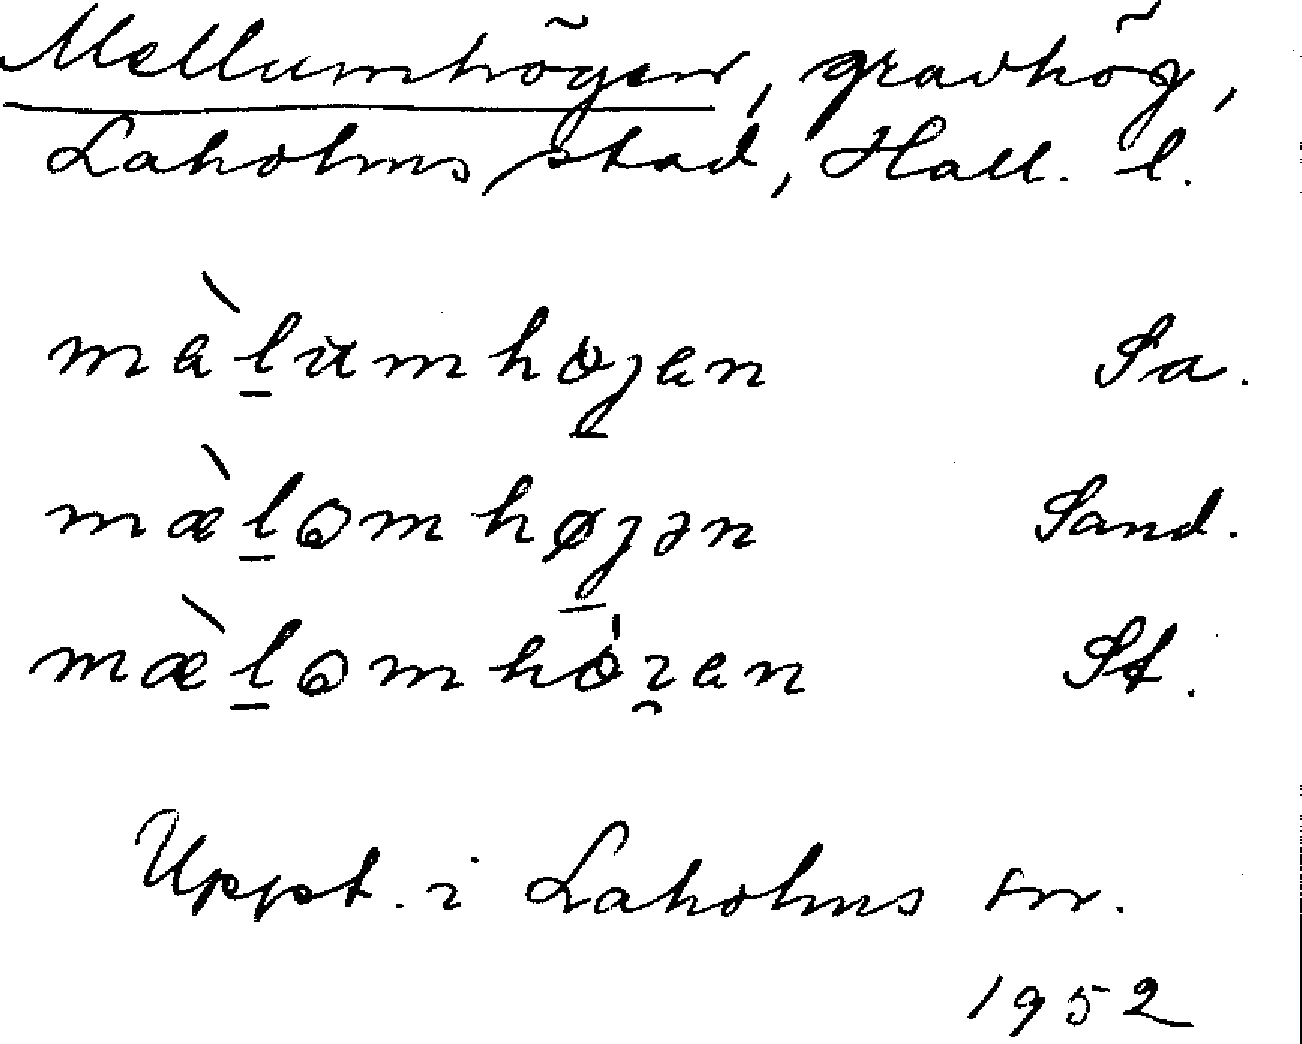 Mellumhögen, gravhög,
Laholms stad, Hall. l.
màl̲umhøj̲en Sa.
mæ̀l̲ɷmhøj̲ən Sand.
mæ̀l̲ɷmhǿı̯en St.
Uppt. i Laholms sn.
1952